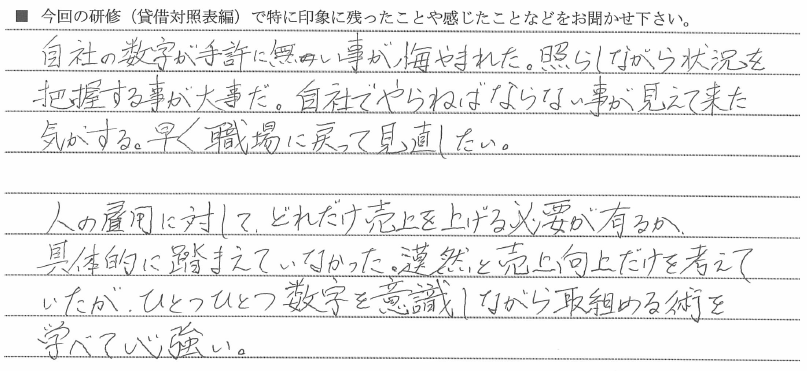 ■ 今回の研修（貸借対照表編）で特に印象に残ったことや感じたことなどをお聞かせ下さい。
自社の数字が手許に無い事が悔やまれた。照らしながら状況を
把握する事が大事だ。自社でやらねばならない事が見えて来た
気がする。早く職場に戻って見直したい。
人の雇用に対して、どれだけ売上を上げる必要が有るか、
具体的に踏まえていなかった。漠然と売上向上だけを考えて
いたが、ひとつひとつ数字を意識しながら取組める術を
学べて心強い。